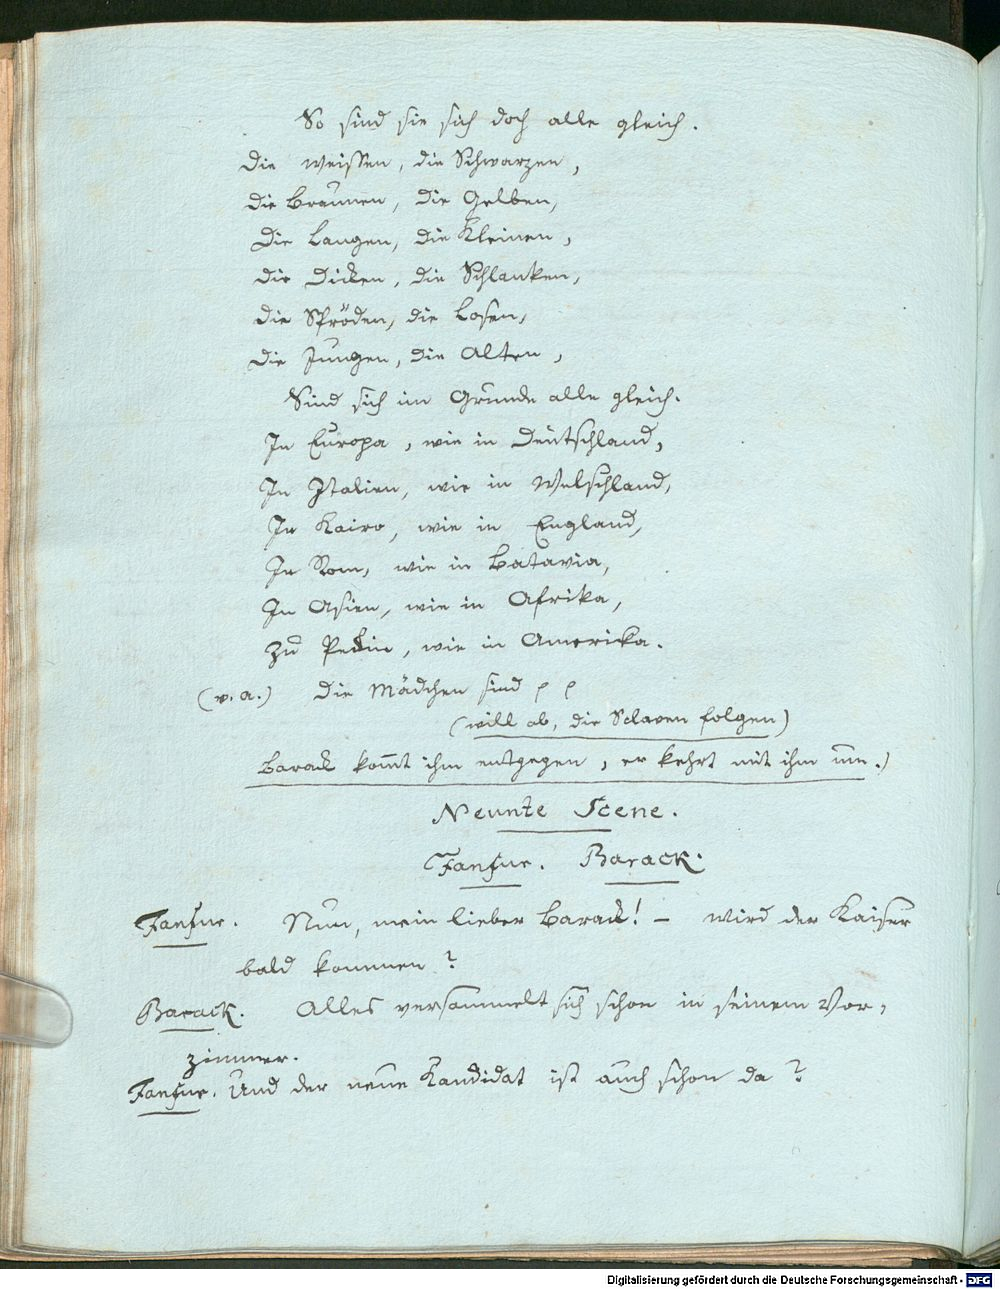 So sind sie sich doch alle gleich.
Die weissen, die Schwarzen,
die Braunen, die Gelben,
Die Langen, die Kleinen,
die Dicken, die Schlanken,
die Spröden, die Losen,
Die Jungen, die Alten,
Sind sich im Grunde alle gleich.
In Europa, wie in Deutschland,
In Italien, wie in Welschland,
In Kairo, wie in England,
In Rom, wie in Batavia,
In Asien, wie in Afrika,
Zu Peckin, wie in Amerika.
(v. a.) Die Mädchen sind p p
(will ab, die Sclaven folgen)
Barack kom̄t ihm entgegen, er kehrt mit ihm um.)
Neunte Scene.
Fanfur. Barack.
Fanfur. Nun, mein lieber Barack! – wird der Kaiser
bald kommen?
Barack. Alles versammelt sich schon in seinem Vor-
zimmer.
Fanfur. Und der neue Kandidat ist auch schon da?
Digitalisierung gefördert durch die Deutsche Forschungsgemeinschaft - DFG